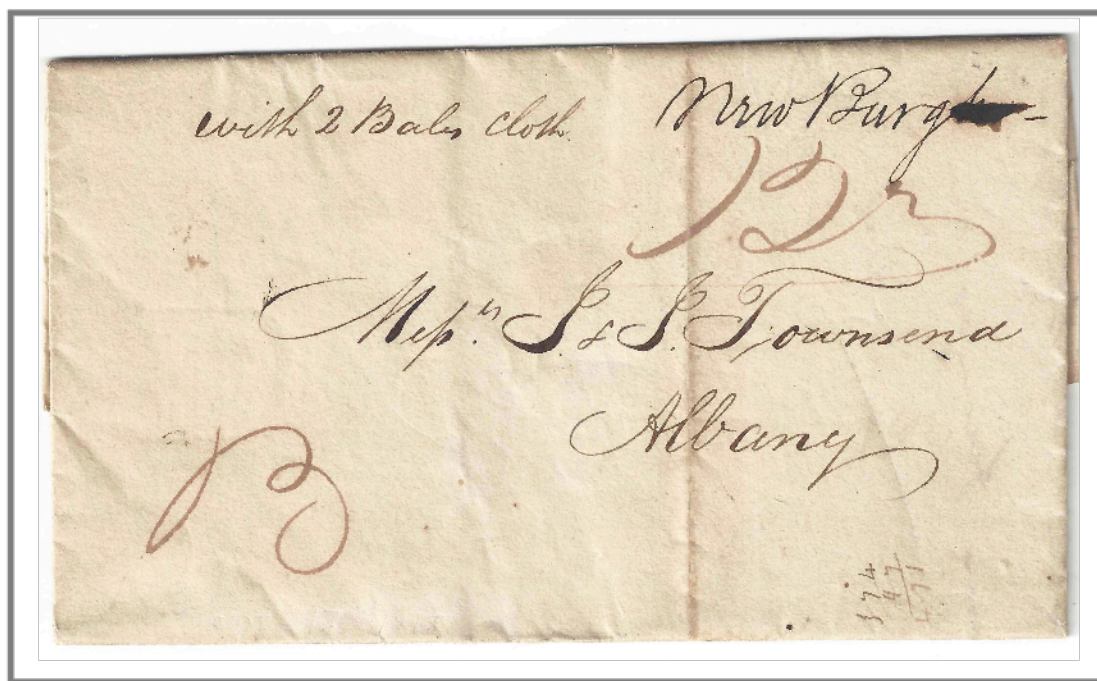 with 2 Bales cloth.
New Burgh -
12
Messrs. J. & J. Townsend
Albany
B
374
97
471